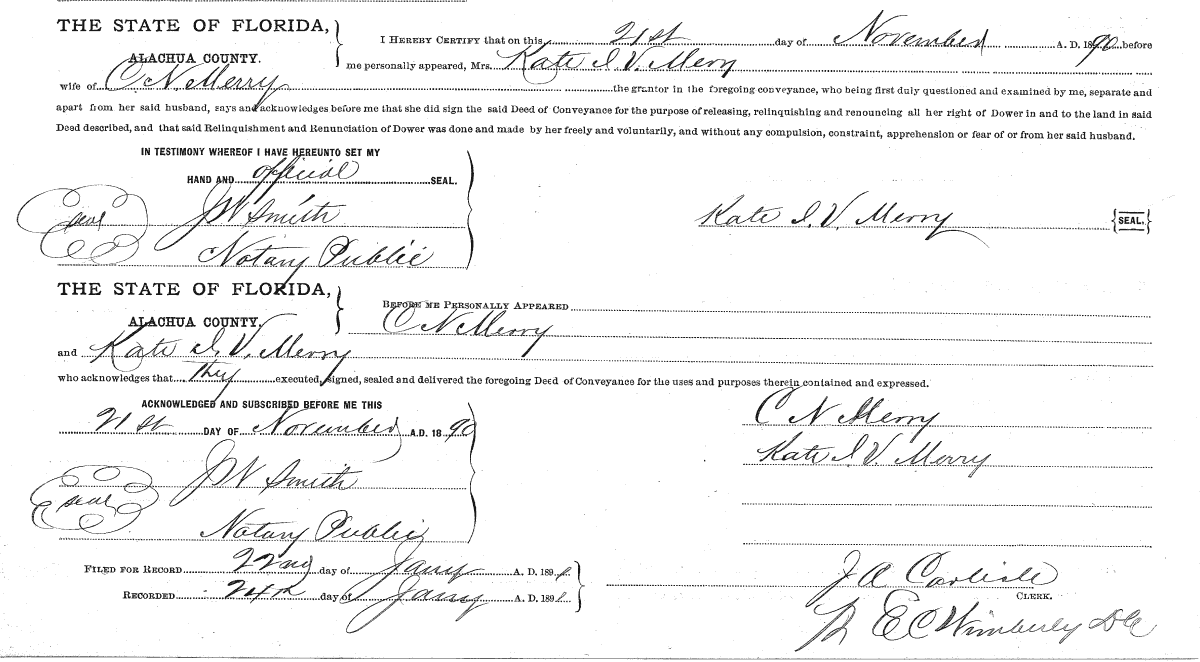 THE STATE OF FLORIDA,
ALACHUA COUNTY.
I HEREBY CERTIFY that on this 21st day of November A. D. 1890, before
me personally appeared, Mrs. Kate I. V. Merry
wife of C N Merry the grantor in the foregoing conveyance, who being first duly questioned and examined by me, separate and
apart from her said husband, says and acknowledges before me that she did sign the said Deed of Conveyance for the purpose of releasing, relinquishing and renouncing all her right of Dower in and to the land in said
Deed described, and that said Relinquishment and Renunciation of Dower was done and made by her freely and voluntarily, and without any compulsion, constraint, apprehension or fear of or from her said husband.
IN TESTIMONY WHEREOF I HAVE HEREUNTO SET MY
HAND AND official SEAL.
seal J W Smith
Notary Public
Kate I. V. Merry {SEAL.}
THE STATE OF FLORIDA,
ALACHUA COUNTY.
BEFORE ME PERSONALLY APPEARED
C N Merry
and Kate I. V. Merry
who acknowledges that they executed, signed, sealed and delivered the foregoing Deed of Conveyance for the uses and purposes therein contained and expressed.
ACKNOWLEDGED AND SUBSCRIBED BEFORE ME THIS
21st DAY OF November A.D. 1890
seal J W Smith
Notary Public
C N Merry
Kate I. V. Merry
FILED FOR RECORD 22nd day of Jany A. D. 1891
RECORDED 24th day of Jany A. D. 1891
J A Carlisle
CLERK.
E C Wimberly D C